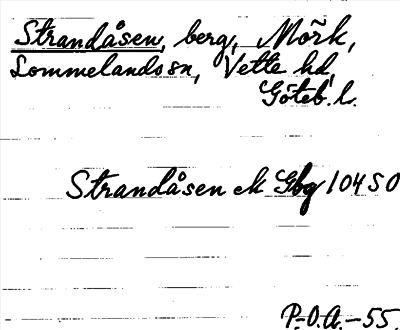 Strandåsen, berg, Mörk,
Lommelands sn, Vette hd,
Göteb. l.
Strandåsen ek Gbg 104 SO
P.-O.A.-55.